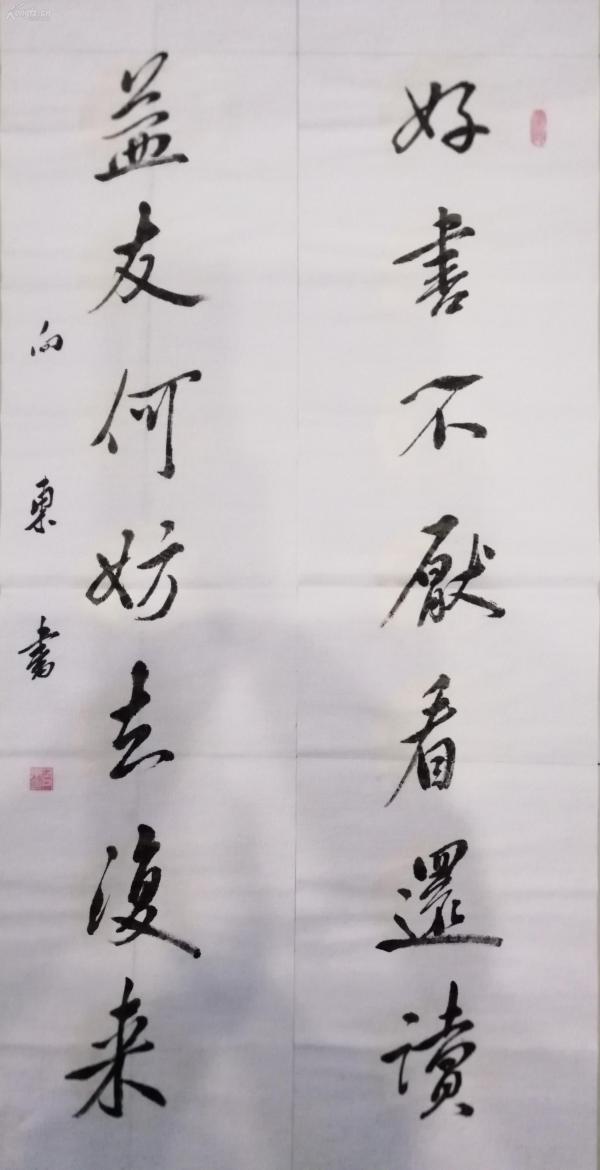 好書不厭看還讀
益友何妨去復来
向東書